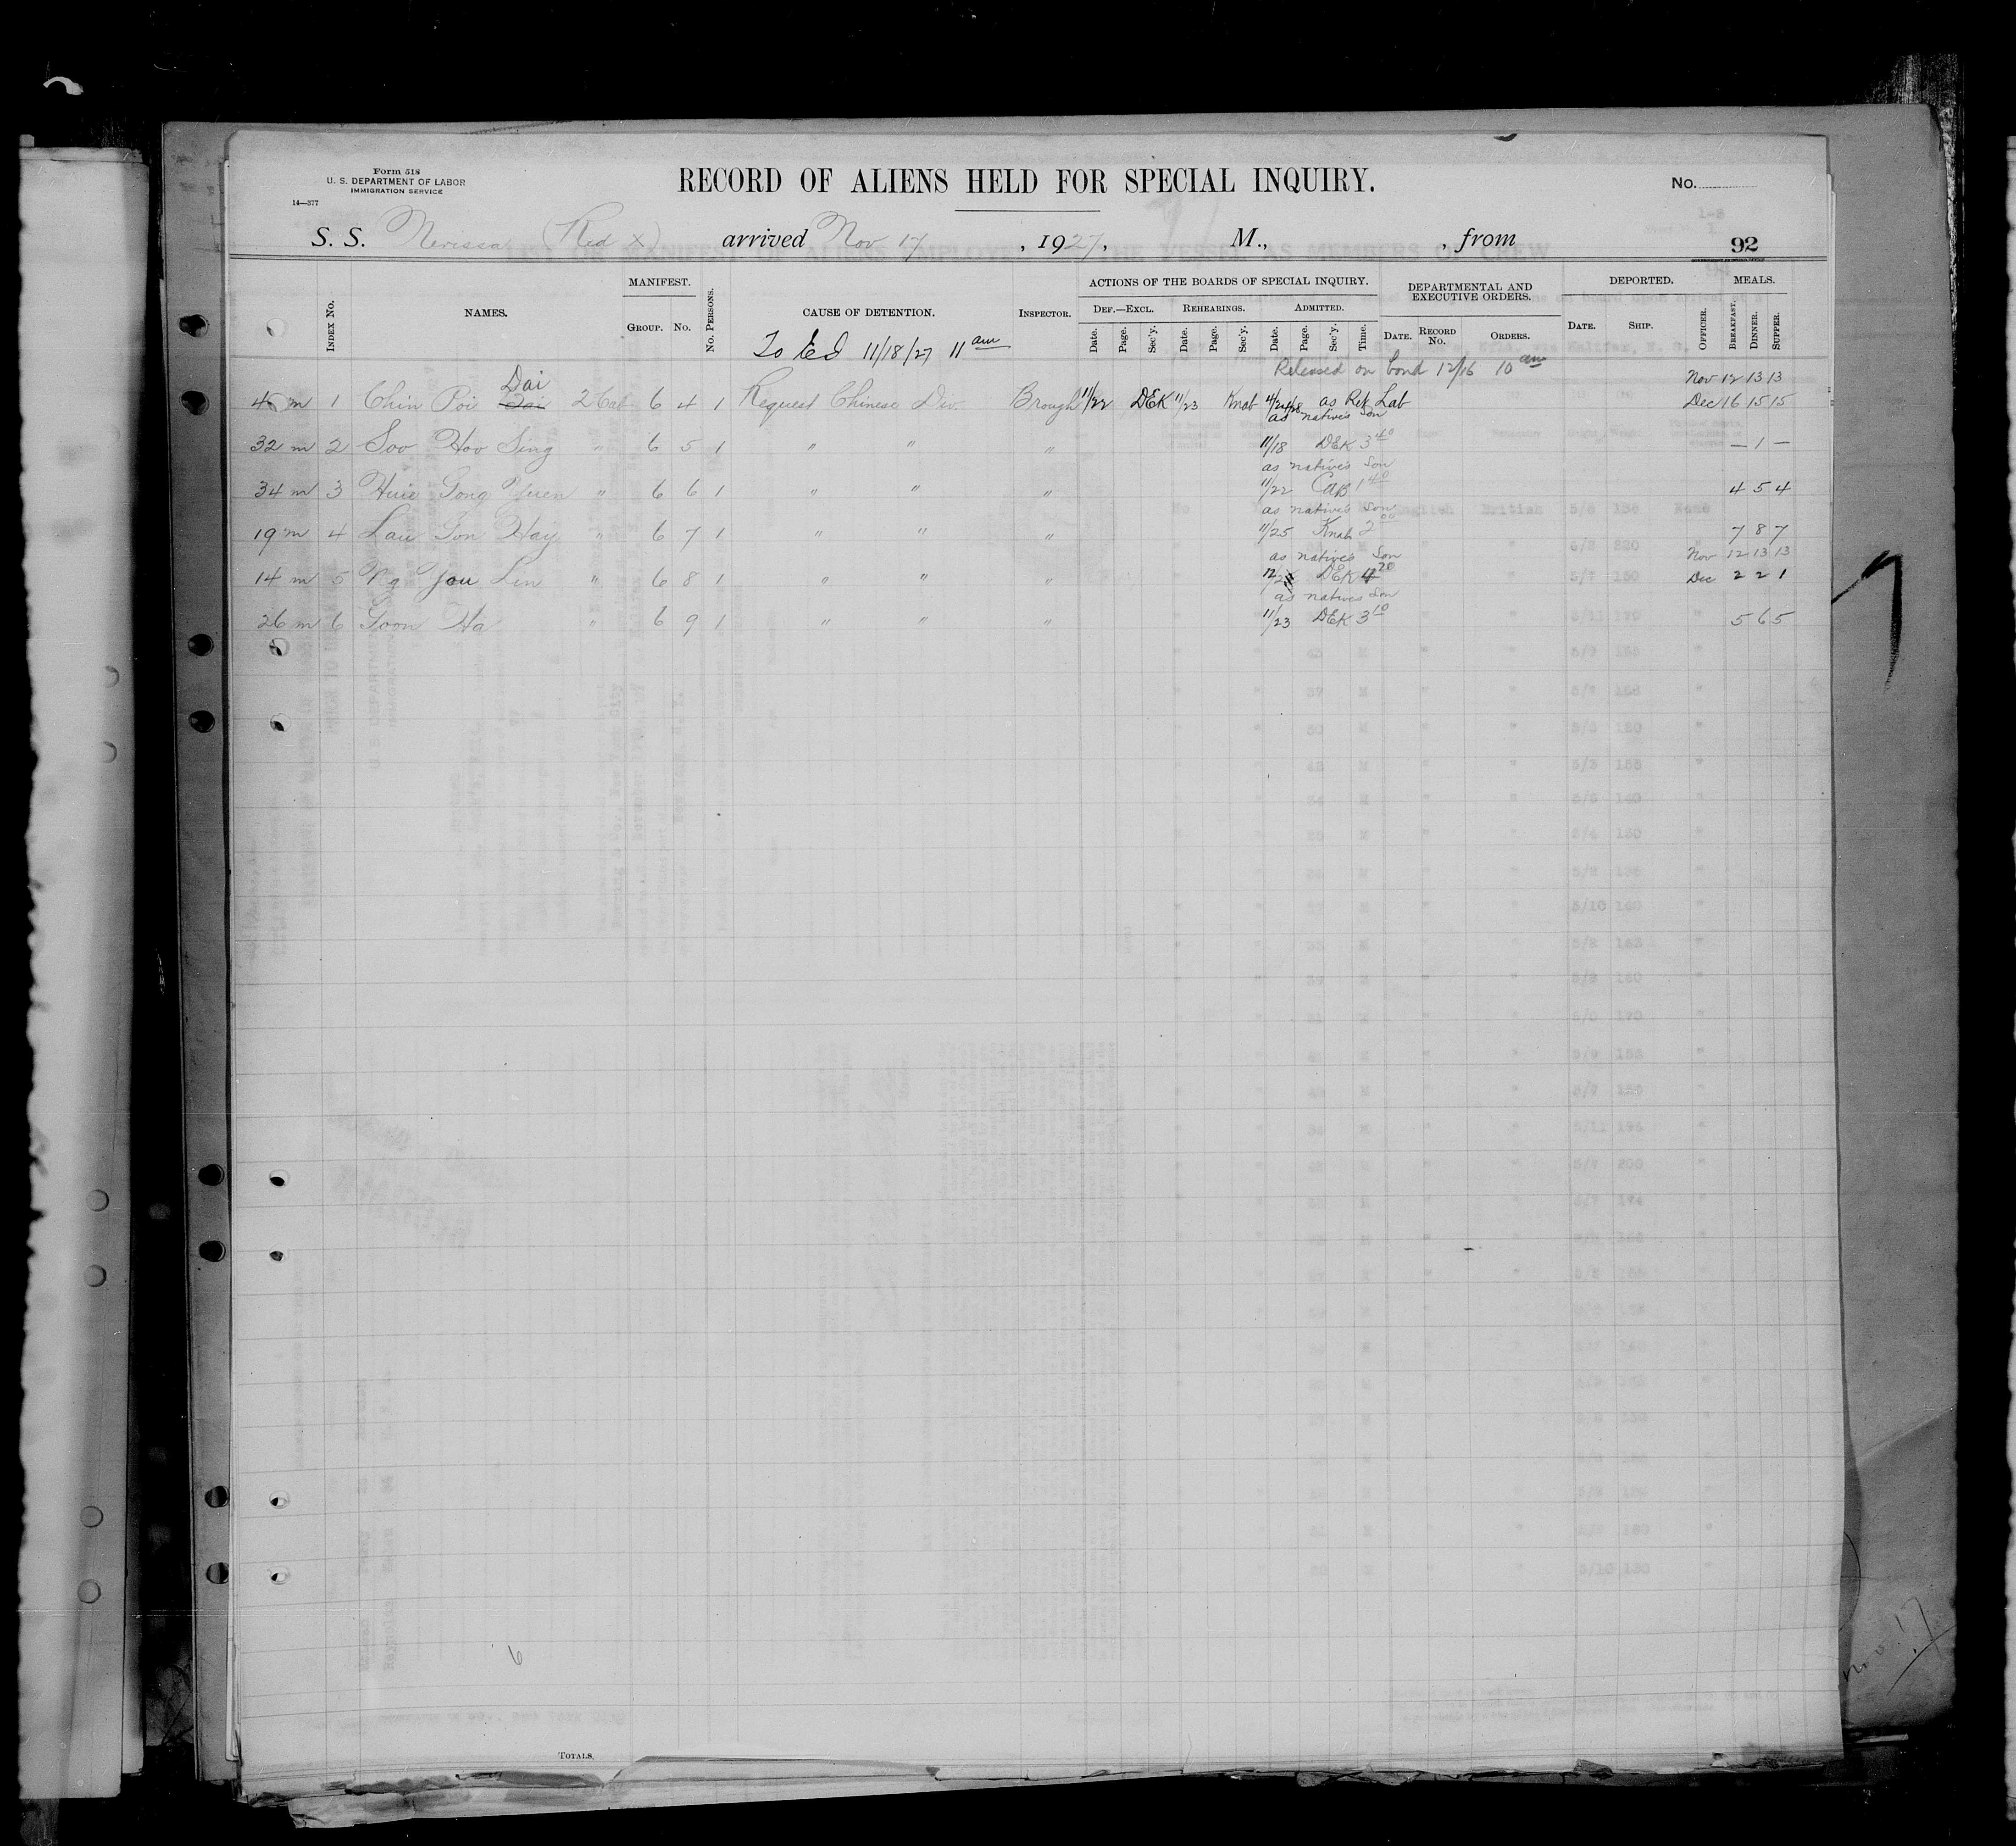 Form 518
U. S. DEPARTMENT OF LABOR
IMMIGRATION SERVICE
14—377
RECORD OF ALIENS HELD FOR SPECIAL INQUIRY.
No.
S. S. Nerissa (Red X) arrived Nov 17, 1927, M., , from
92
INDEX No. NAMES. MANIFEST. GROUP. No. No. PERSONS. CAUSE OF DETENTION. INSPECTOR. ACTIONS OF THE BOARDS OF SPECIAL INQUIRY. DEF.—EXCL. Date. Page. Sec'y. REHEARINGS. Date. Page. Sec'y. ADMITTED. Date. Page. Sec'y. Time. DEPARTMENTAL AND EXECUTIVE ORDERS. DATE. RECORD No. ORDERS. DEPORTED. DATE. SHIP. OFFICER. MEALS. BREAKFAST. DINNER. SUPPER.
11/18/27 11 am
Released on bond 12/16 10 am
Dai Nov 12 13 13
m 1 Chin Poi Dai 2 Cab 6 4 1 Request Chinese Div. Brough 11/22 DEK 11/23 Knab as Ret Lab Dec 16 15 15
as natives Son
32 m 2 Soo Hoo Sing " 6 5 1 " " " 11/18 DEK 3 40 — 1 —
as natives Son
34 m 3 Huie Gong Yuen " 6 6 1 " " " 11/22 CAB 1 40 4 5 4
as natives Son
19 m 4 Lau Gon Hay " 6 7 1 " " " 11/25 Knab 2 00 7 8 7
as natives Son Nov 12 13 13
14 m 5 Ng You Lin " 6 8 1 " " " DEK 4 20 Dec 2 2 1
as natives Son
26 m 6 Goon Ha " 6 9 1 " " " 11/23 DEK 3 10 5 6 5
6
TOTALS,
Nov. 17